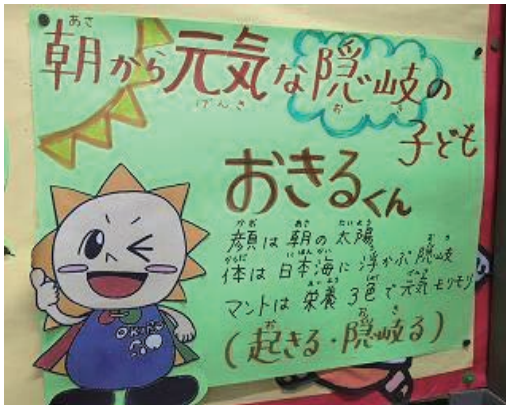 朝から元気な隠岐の
子ども
おきるくん
顔は朝の太陽
体は日本海に浮かぶ隠岐
マントは栄養3色で元気モリモリ
(起きる・隠岐る)